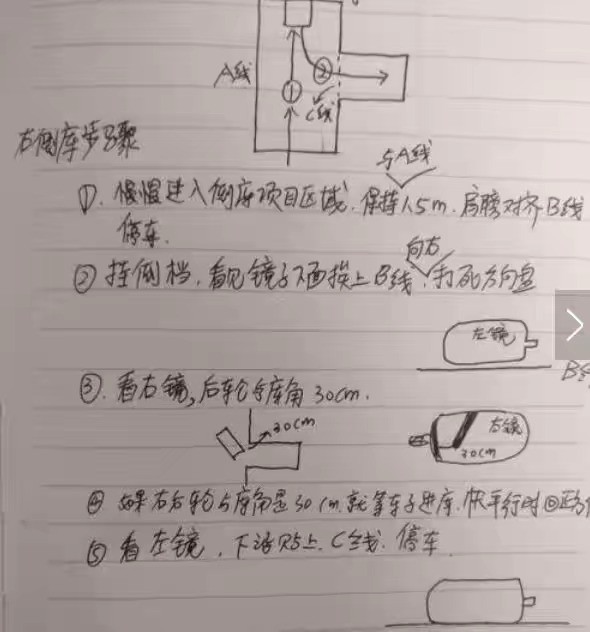 A线
①
②
C线
右倒库步骤
与A线
①. 慢慢进入倒库项目区域. 保持1.5m. 肩膀对齐B线
停车.
向右
② 挂倒档, 看见镜子下面挨上B线, 打死方向盘
左镜
B
③. 看右镜, 后轮与库角30cm.
30cm
右镜
30cm
④ 如果右后轮与库角是30cm. 就等车子进库. 快平行时回正方
⑤ 看左镜, 下沿 上. C线. 停车.